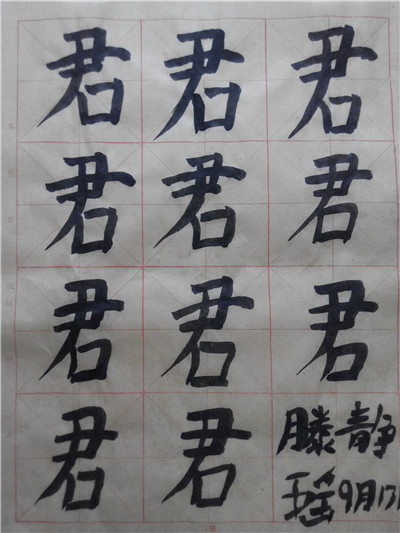 君君君
君君君
君君君
君君滕静
瑶9月17日